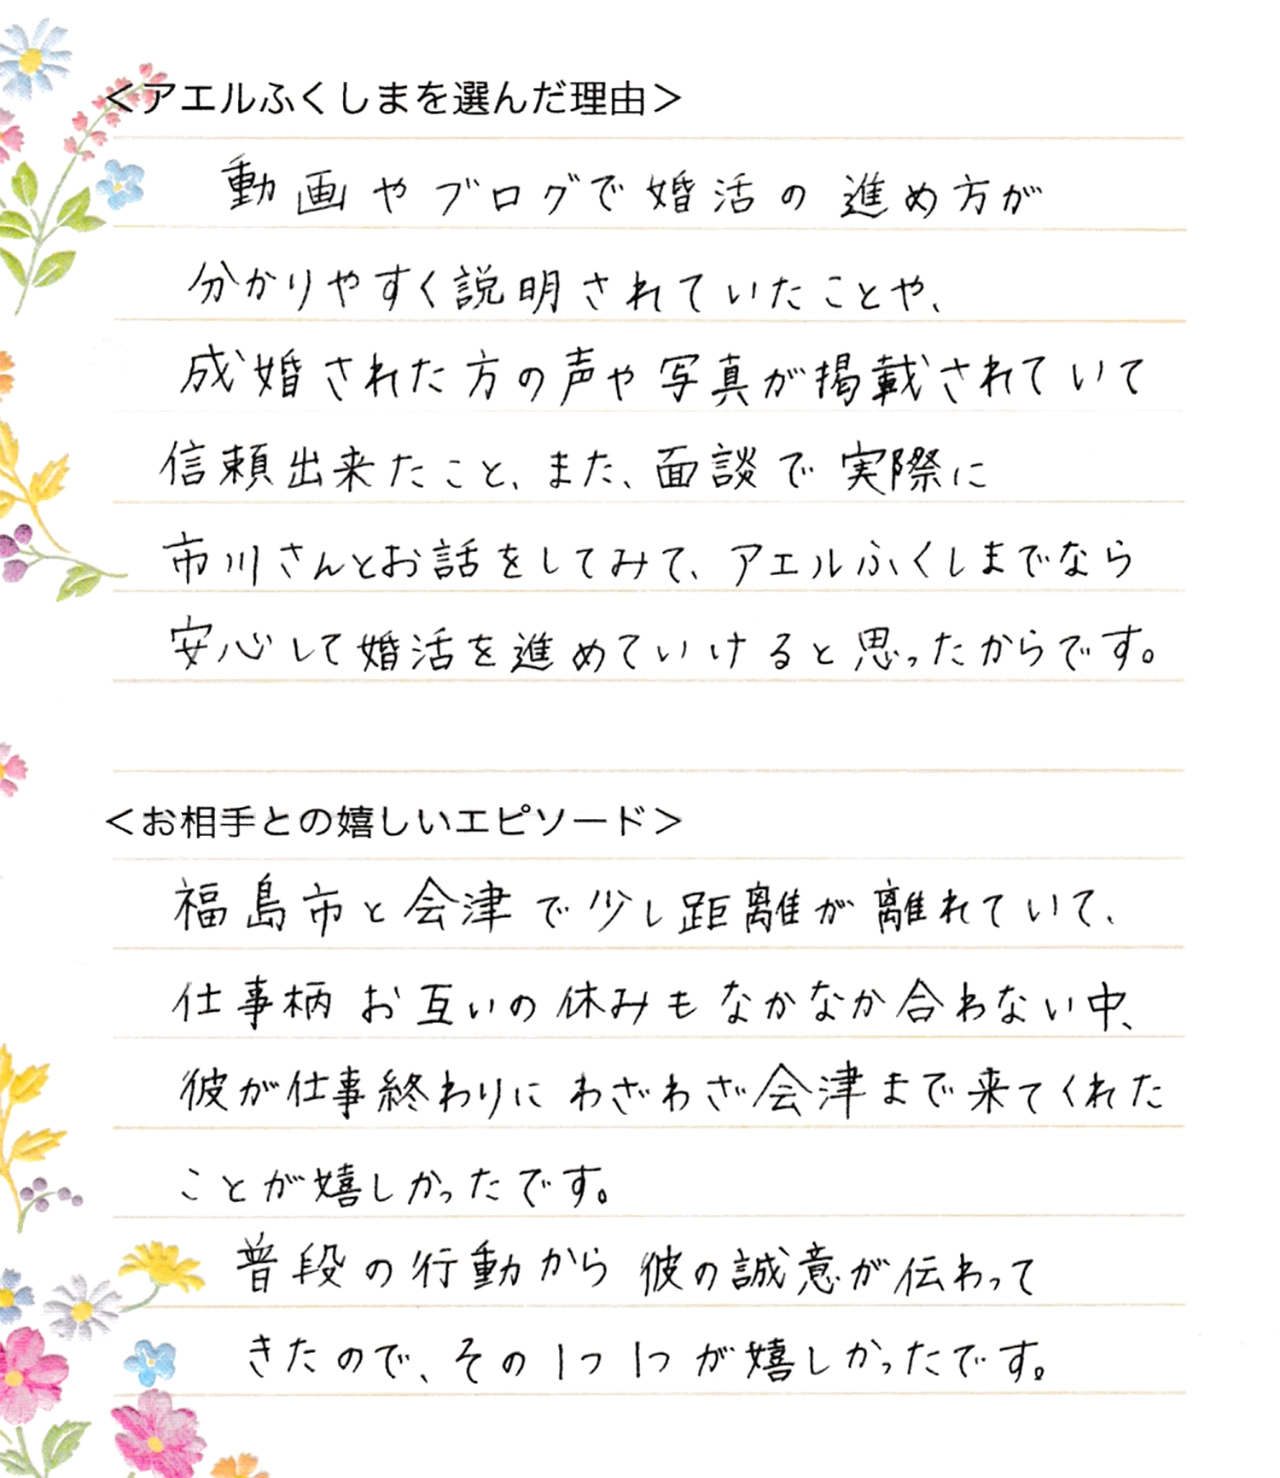 ＜アエルふくしまを選んだ理由＞
動画やブログで婚活の進め方が
分かりやすく説明されていたことや、
成婚された方の声や写真が掲載されていて
信頼出来たこと、また、面談で実際に
市川さんとお話をしてみて、アエルふくしまでなら
安心して婚活を進めていけると思ったからです。
＜お相手との嬉しいエピソード＞
福島市と会津で少し距離が離れていて、
仕事柄お互いの休みもなかなか合わない中、
彼が仕事終わりにわざわざ会津まで来てくれた
ことが嬉しかったです。
普段の行動から彼の誠意が伝わって
きたので、その1つ1つが嬉しかったです。